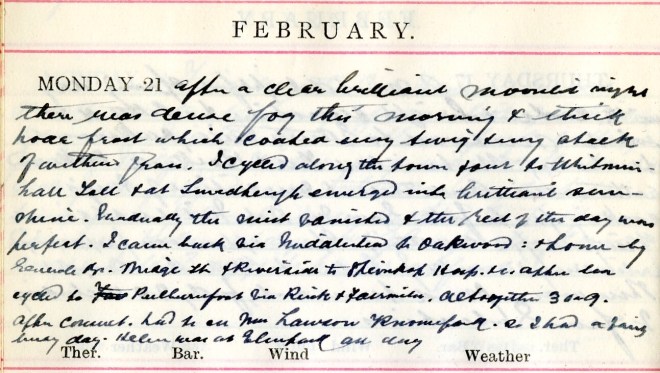 FEBRUARY.
MONDAY 21 after a clear brilliant moonlit night
there was dense fog this morning & thick
hoar frost which coated every twig every stack
of withered grass. I cycled along the town & out to Whitmuir-
hall Toll & at emerged into brilliant sun-
shine. Gradually the mist vanished & the rest of the day was
perfect. I came back via to Oakwood: & home by
Bridge & Riverside to Hosp. &c. after tea
cycled to via & Fairnilee. altogether 30-9.
after had to see Mrs Lawson Knowepark. so I had a fairly
busy day. Helen was at Elmpark all day
Ther. Bar. Wind Weather